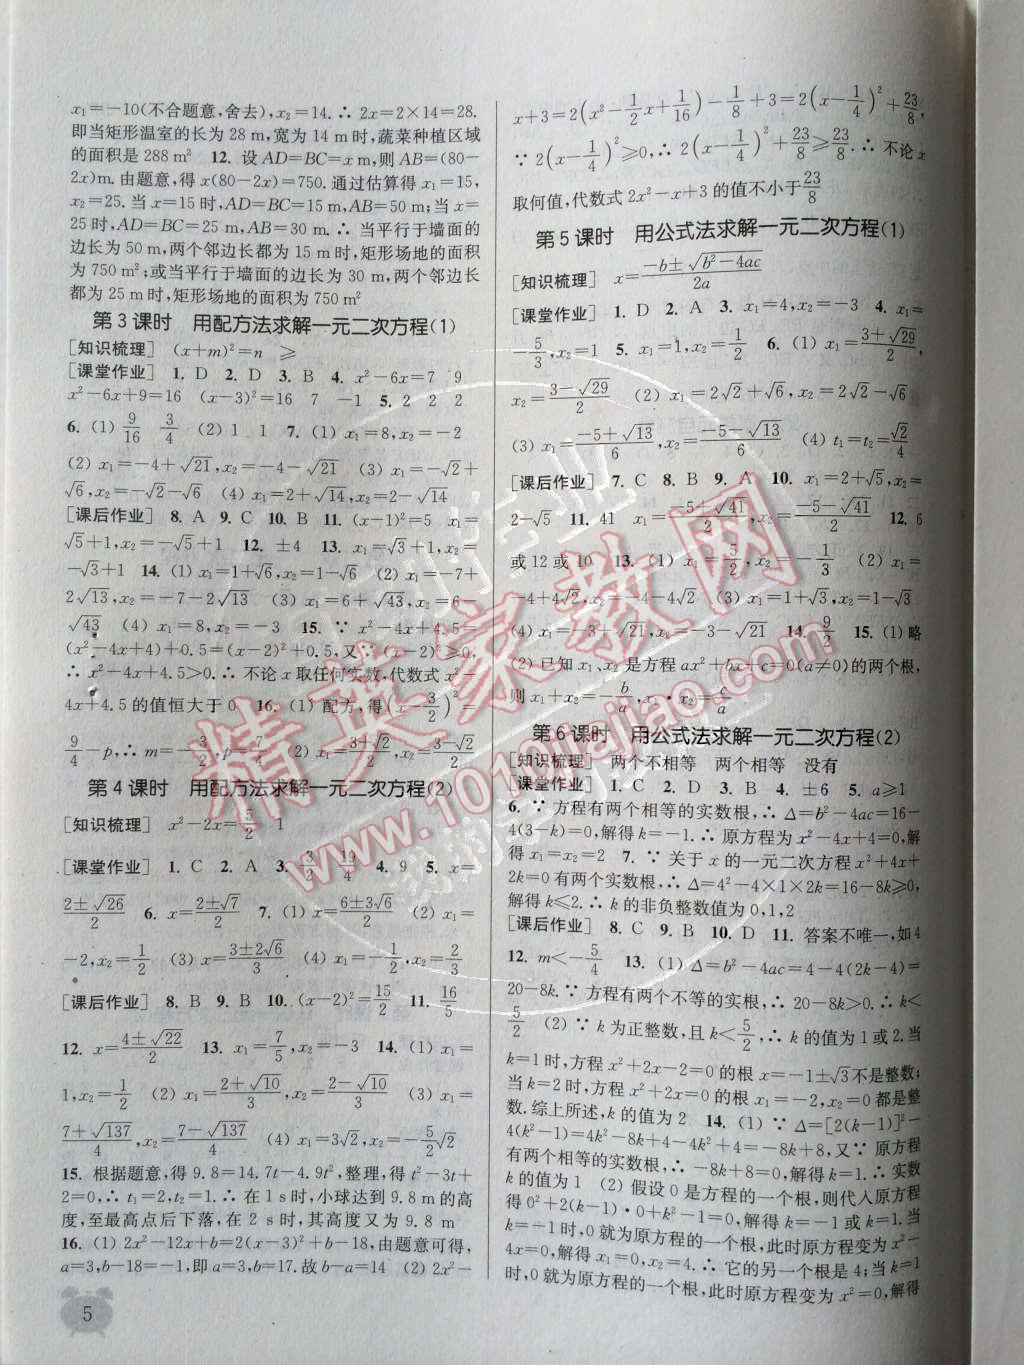 x₁=-10(不合题意,舍去),x₂=14.∴ 2x=2×14=28.
即当矩形温室的长为 28 m,宽为 14 m 时,蔬菜种植区域
的面积是 288 m² 12. 设 AD=BC=x m,则 AB=(80-
2x)m. 由题意,得 x(80-2x)=750. 通过估算得 x₁=15,
x₂=25. 当 x=15 时,AD=BC=15 m,AB=50 m;当 x=
25 时,AD=BC=25 m,AB=30 m. ∴ 当平行于墙面的
边长为 50 m,两个邻边长都为 15 m 时,矩形场地的面积
为 750 m²;或当平行于墙面的边长为 30 m,两个邻边长
都为 25 m 时,矩形场地的面积为 750 m²
第 3 课时 用配方法求解一元二次方程(1)
[知识梳理] (x+m)²=n ≥
[课堂作业] 1. D 2. D 3. B 4. x²-6x=7 9
x²-6x+9=16 (x-3)²=16 7 -1 5. 2 2 2
6. (1) 9/16 3/4 (2) 1 1 7. (1) x₁=8,x₂=-2
(2) x₁=-4+√21,x₂=-4-√21 (3) x₁=-√2+
√6,x₂=-√2-√6 (4) x₁=2+√14,x₂=2-√14
[课后作业] 8. A 9. C 10. B 11. (x-1)²=5 x₁=
√5+1,x₂=-√5+1 12. ±4 13. x₁=√3+1,x₂=
-√3+1 14. (1) x₁=1+√6,x₂=1-√6 (2) x₁=-7+
2√13,x₂=-7-2√13 (3) x₁=6+√43,x₂=6-
√43 (4) x₁=8,x₂=-2 15. ∵ x²-4x+4.5=
(x²-4x+4)+0.5=(x-2)²+0.5,又∵ (x-2)²≥0,
∴ x²-4x+4.5>0.∴ 不论 x 取任何实数,代数式 x²-
4x+4.5 的值恒大于 0 16. (1) 配方,得(x-3/2)²=
9/4-p,∴ m=-3/2,p=7/4 (2) x₁=(3+√2)/2,x₂=(3-√2)/2
第 4 课时 用配方法求解一元二次方程(2)
[知识梳理] x²-2x=5/2 1
[课堂作业] 1. C 2. A 3. 3/2 19/4 4. 9 5. x=
(2±√26)/2 6. x=(2±√7)/2 7. (1) x=(6±3√6)/2 (2) x₁=
-2,x₂=1/2 (3) x=(3±2√6)/3 (4) x₁=-1/2,x₂=1/2
[课后作业] 8. B 9. B 10. (x-2)²=15/2 11. 16/5
12. x=(4±√22)/2 13. x₁=7/5,x₂=-3 14. (1) x₁=
1,x₂=1/2 (2) x₁=(2+√10)/3,x₂=(2-√10)/3 (3) x₁=
(7+√137)/4,x₂=(7-√137)/4 (4) x₁=3√2,x₂=-5/2√2
15. 根据题意,得 9.8=14.7t-4.9t²,整理,得 t²-3t+
2=0,∴ t₁=2,t₂=1.∴ 在 1 s 时,小球达到 9.8 m 的高
度,至最高点后下落,在 2 s 时,其高度又为 9.8 m
16. (1) 2x²-12x+b=2(x-3)²+b-18,由题意可得,
a=3,b-18=-1,即 a=3,b=17.故 b-a=14 (2) 2x²-
5
x+3=2(x²-1/2x+1/16)-1/8+3=2(x-1/4)²+23/8,
∵ 2(x-1/4)²≥0,∴ 2(x-1/4)²+23/8≥23/8.∴ 不论 x
取何值,代数式 2x²-x+3 的值不小于 23/8
第 5 课时 用公式法求解一元二次方程(1)
[知识梳理] x=(-b±√(b²-4ac))/2a
[课堂作业] 1. D 2. A 3. x₁=4,x₂=-3 4. x₁=
-5/3,x₂=1 5. x₁=1,x₂=1/2 6. (1) x₁=(3+√29)/2,
x₂=(3-√29)/2 (2) x₁=2√2+√6,x₂=2√2-√6
(3) x₁=(-5+√13)/6,x₂=(-5-√13)/6 (4) t₁=t₂=√2/2
[课后作业] 7. C 8. B 9. A 10. x₁=2+√5,x₂=
2-√5 11. 41 x₁=(-5+√41)/2,x₂=(-5-√41)/2 12. 6
或 12 或 10 13. (1) x₁=5/2,x₂=-1/3 (2) x₁=
-4+4√2,x₂=-4-4√2 (3) x₁=1+√3,x₂=1-√3
(4) x₁=-3+√21,x₂=-3-√21 14. 9/2 15. (1) 略
(2) 已知 x₁、x₂ 是方程 ax²+bx+c=0(a≠0)的两个根,
则 x₁+x₂=-b/a,x₁·x₂=c/a
第 6 课时 用公式法求解一元二次方程(2)
[知识梳理] 两个不相等 两个相等 没有
[课堂作业] 1. C 2. D 3. B 4. ±6 5. a≥1
6. ∵ 方程有两个相等的实数根,∴ Δ=b²-4ac=16-
4(3-k)=0,解得 k=-1.∴ 原方程为 x²-4x+4=0,解
得 x₁=x₂=2 7. ∵ 关于 x 的一元二次方程 x²+4x+
2k=0 有两个实数根,∴ Δ=4²-4×1×2k=16-8k≥0,
解得 k≤2.∴ k 的非负整数值为 0,1,2
[课后作业] 8. C 9. B 10. D 11. 答案不唯一,如 4
12. m<-5/4 13. (1) Δ=b²-4ac=4-4(2k-4)=
20-8k.∵ 方程有两个不等的实根,∴ 20-8k>0.∴ k<
5/2 (2) ∵ k 为正整数,且 k<5/2,∴ k 的值为 1 或 2.当
k=1 时,方程 x²+2x-2=0 的根 x=-1±√3不是整数;
当 k=2 时,方程 x²+2x=0 的根 x₁=-2,x₂=0 都是整
数.综上所述,k 的值为 2 14. (1) ∵ Δ=[2(k-1)]²-
4(k²-1)=4k²-8k+4-4k²+4=-8k+8,又∵ 原方程
有两个相等的实数根,∴ -8k+8=0,解得 k=1.∴ 实数
k 的值为 1 (2) 假设 0 是方程的一个根,则代入原方程
得 0²+2(k-1)·0+k²-1=0,解得 k=-1 或 k=1.当
k=-1 时,0 就为原方程的一个根,此时原方程变为 x²-
4x=0,解得 x₁=0,x₂=4.∴ 它的另一个根是 4;当 k=1
时,0 就为原方程的一个根,此时原方程变为 x²=0,解得
精英家教网
www.1010jiajiao.com